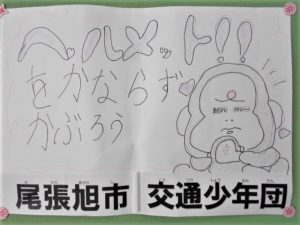 ヘルメット!!
をかならず
かぶろう
尾張旭市 交通少年団